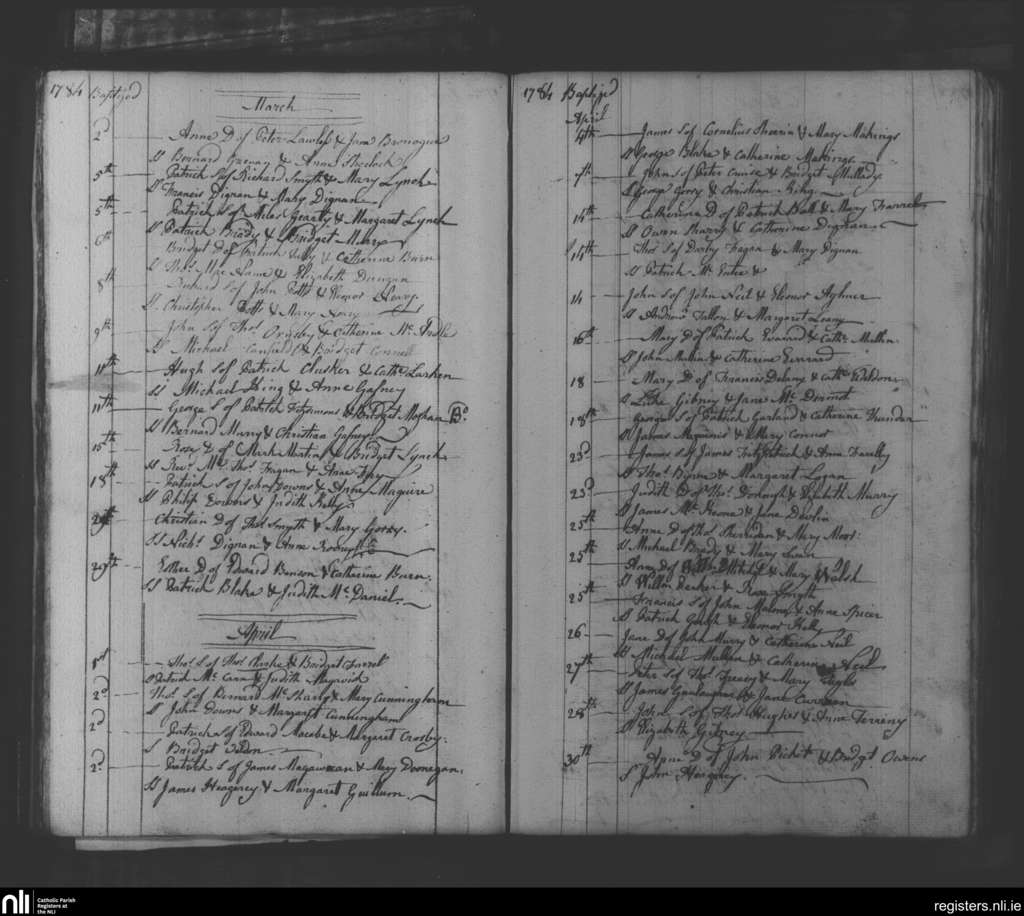 1784 Baptized
March
2d Anne D of Peter Lawless & Jane
Ss Bernard & Anne Sherlock
5th Patrick S of Richard Smyth & Mary Lynch
Ss Francis Dignan & Mary Dignan
5th Patrick S of Miles Gearty & Margaret Lynch
Ss Patrick Brady & Bridget Murry
6th Bridget D of Patrick & Catherine Burn
Ss Thos. & Elizabeth
8th Richard S of John Potts & Eleonor Henry
Ss Christopher Potts & Mary Henry
9th John S of Thos. & Catherine Mc. Ardle
Ss Michael & Bridget Connell
11th Hugh S of Patrick Clusker & Cathe. Larken
Ss Michael King & Anne Gafney
11th George S of Patrick Fitzsimons & Bridget Meghan Bd.
Ss Bernard Murry & Christian Gafney
15th Rose D of Mark Martin & Bridget Lynch
Ss Revd. Mr. Thos. Fagan & Anne Fay
18th Patrick S of John Downs & Anne Maguire
Ss Philip & Judith Kelly
Christian D of Thos Smyth & Mary Gorry.
Ss Nichs. Dignan & Anne
29th Esther D of Edward Benson & Catherine Burn.
Ss Patrick Blake & Judith Mc. Daniel.
April
1st Thos. S of Thos. Clarke & Bridget Farrell
Patrick Mc. Cann & Judith
2d Thos. S of Bernard Mc. Sharry & Mary Cunningham
Ss John Downs & Margaret Cunningham
2d Patrick S of Edward Macabe & Margaret Crosby.
S Bridget
2d Patrick S of James Magawran & Mary Donnegan.
Ss James Heagerey & Margaret
1784 Baptized
April
4th James S of Cornelius & Mary Makings
Ss George Blake & Catherine Makings
7th John S of Peter Cruise & Bridget Mullady
Ss George Gorry & Christian
14th Catherine D of Patrick Ball & Mary
Ss Owen & Catherine Dignan
14th Thos S of Darby Fagan & Mary Dignan
Ss Patrick Mc. Entee &
14 John S of John Neil & Eleonor Aylmer
Ss Andrew Fallon & Margaret Leany
16th Mary D of Patrick & Cathe. Mullen
Ss John Mullen & Catherine Gerrard
18 Mary D of Francis Delany & Cathe. Weldon
Ss Luke Gibney & Jane Mc. Dermot
18th George S of Patrick Garland & Catherine
Ss James Maginnis & Mary Connor
23d James S of James Fitzpatrick & Anne Farelly
Ss Thos. Byrne & Margaret Logan
23d Judith D of Thos. & Elizabeth Murry
Ss James Mc. Keone & Jane Devlin
25th Anne D of Thos. Sherridan & Mary Moor:
Ss Michael Brady & Mary
25th Anne D of & Mary Walsh
Ss Willm & Rose Smyth
25th Francis S of John Malone & Anne Spicer
Ss Patrick Gough & Eleonor Kelly
26 Jane D of John Murry & Catherine Neil
Ss Michael Mullen & Catherine Neil
27th Peter S of Thos. & Mary
Ss James & Jane Curran
28th John S of Thos. Hughes & Anne
Ss Elizabeth Gibney
30th Anne D of John & Bridgt. Owens
S John Heagerey.
nli Catholic Parish
Registers at
the NLI
registers.nli.ie